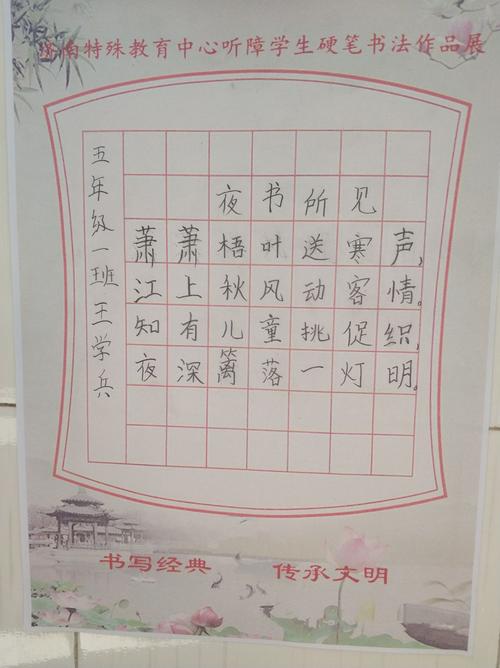 济南特殊教育中心听障学生硬笔书法作品展
五年级一班王学兵
夜书所见
萧萧梧叶送寒声，
江上秋风动客情。
知有儿童挑促织，
夜深篱落一灯明。
书写经典 传承文明